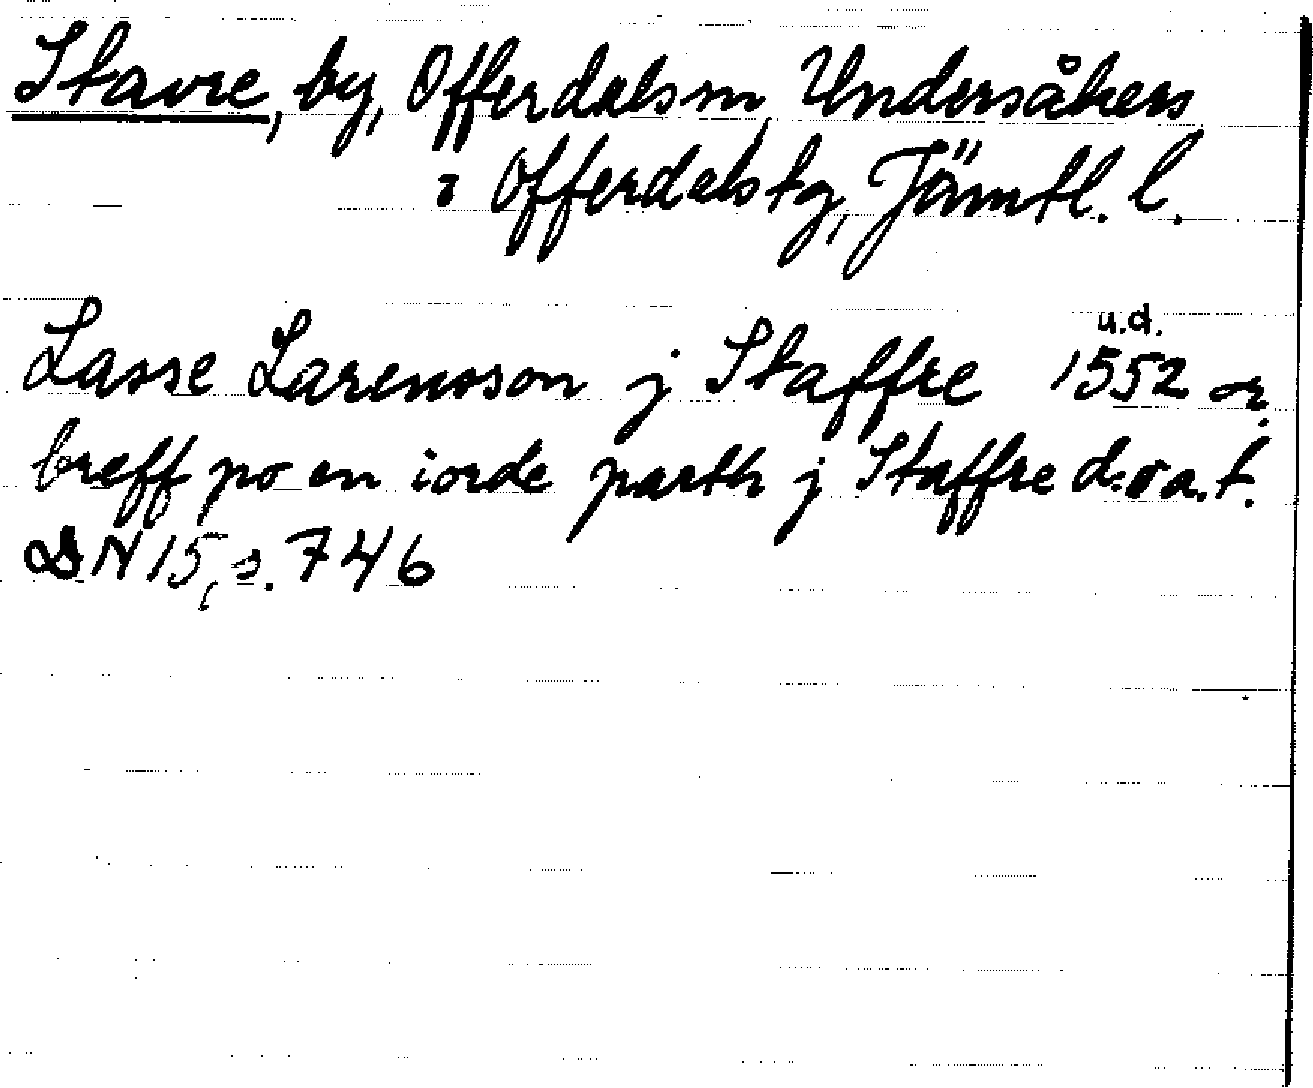 Stavre, by, Offerdals sn, Undersåkers
o Offerdals tg, Jämtl. l.
Lasse Larensson j Staffre 1552 u.d. or.
breff po en iorde parth j Staffre d:o a.t.
DN 15, s. 746